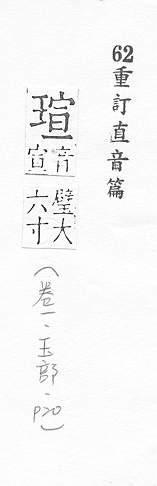 62重訂直音篇
瑄
音宣
璧大六寸
(卷一、玉部、P20)